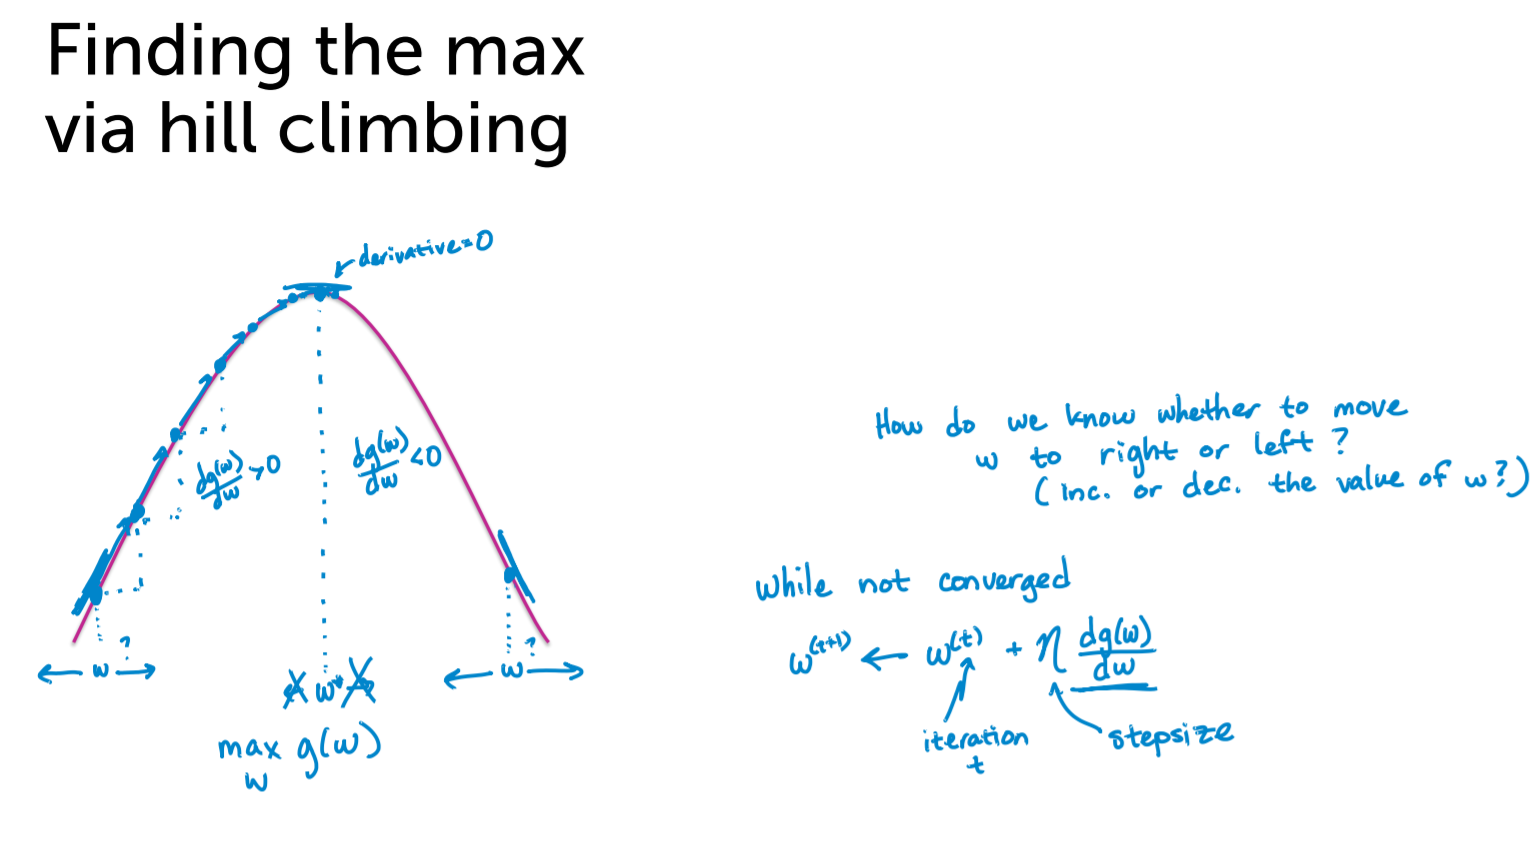 Finding the max
via hill climbing
derivative=0
dg(w)/dw >0
dg(w)/dw <0
w ?
w*
w ?
max g(w)
w
How do we know whether to move
w to right or left?
(inc. or dec. the value of w?)
while not converged
w^(t+1) ← w^(t) + η dg(w)/dw
iteration
t
stepsize